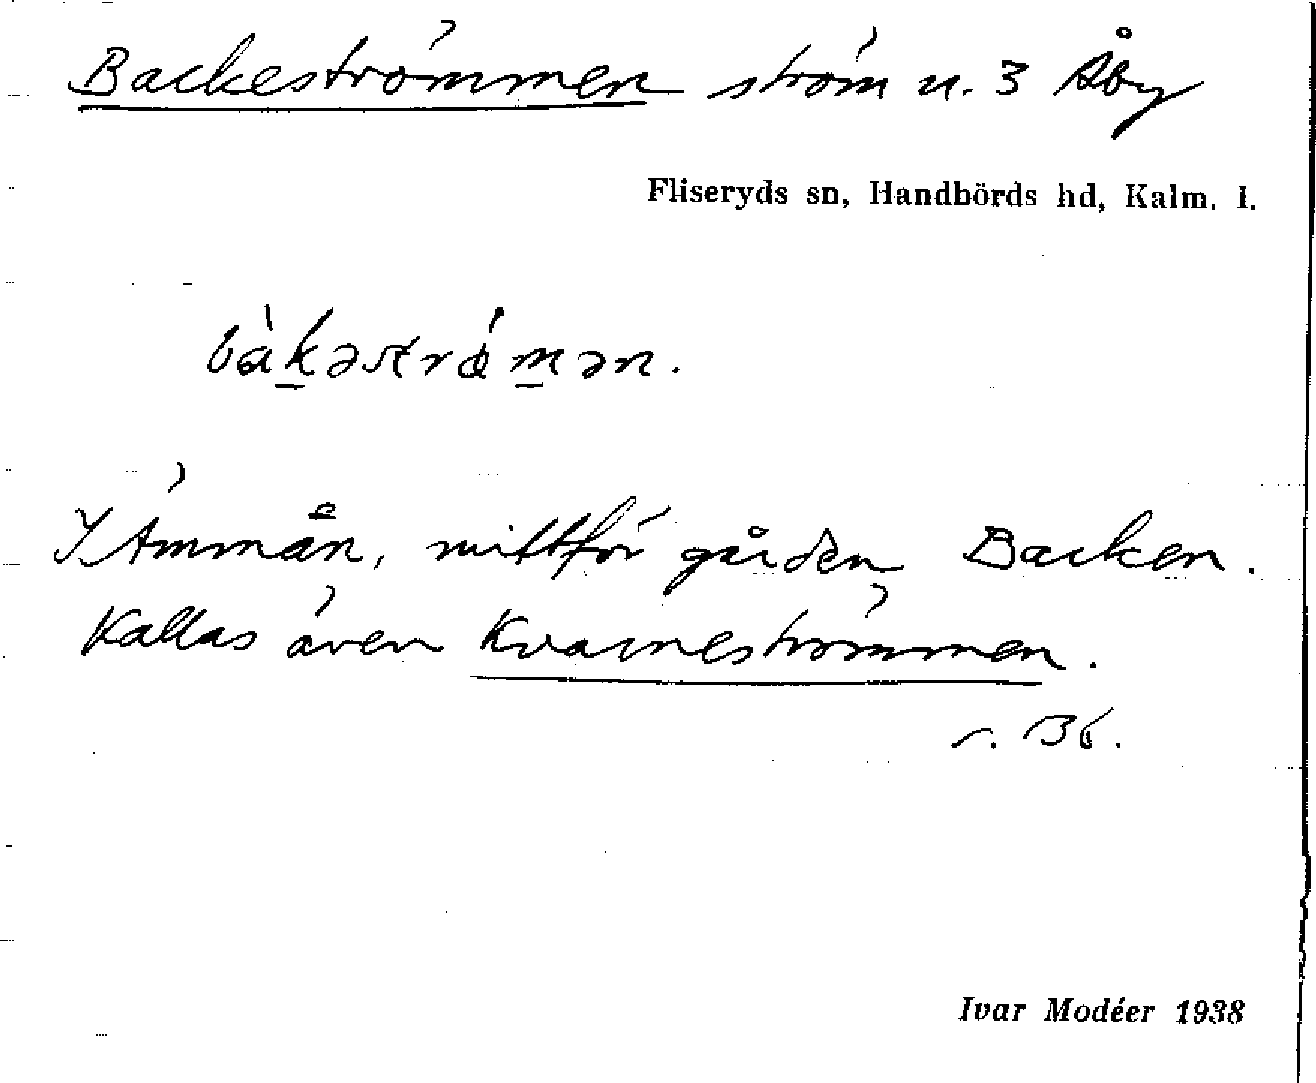 Backeströmmen ström u. 3 Åby
Fliseryds sn, Handbörds hd, Kalm. l.
bàkəstrǿmən.
I Ämmån, mittför gården Backen.
Kallas även Kvarneströmmen.